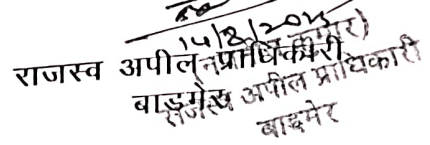 14/8/2014
राजस्व अपील प्राधिकारी
बाड़मेर
राजस्व अपील प्राधिकारी
बाड़मेर